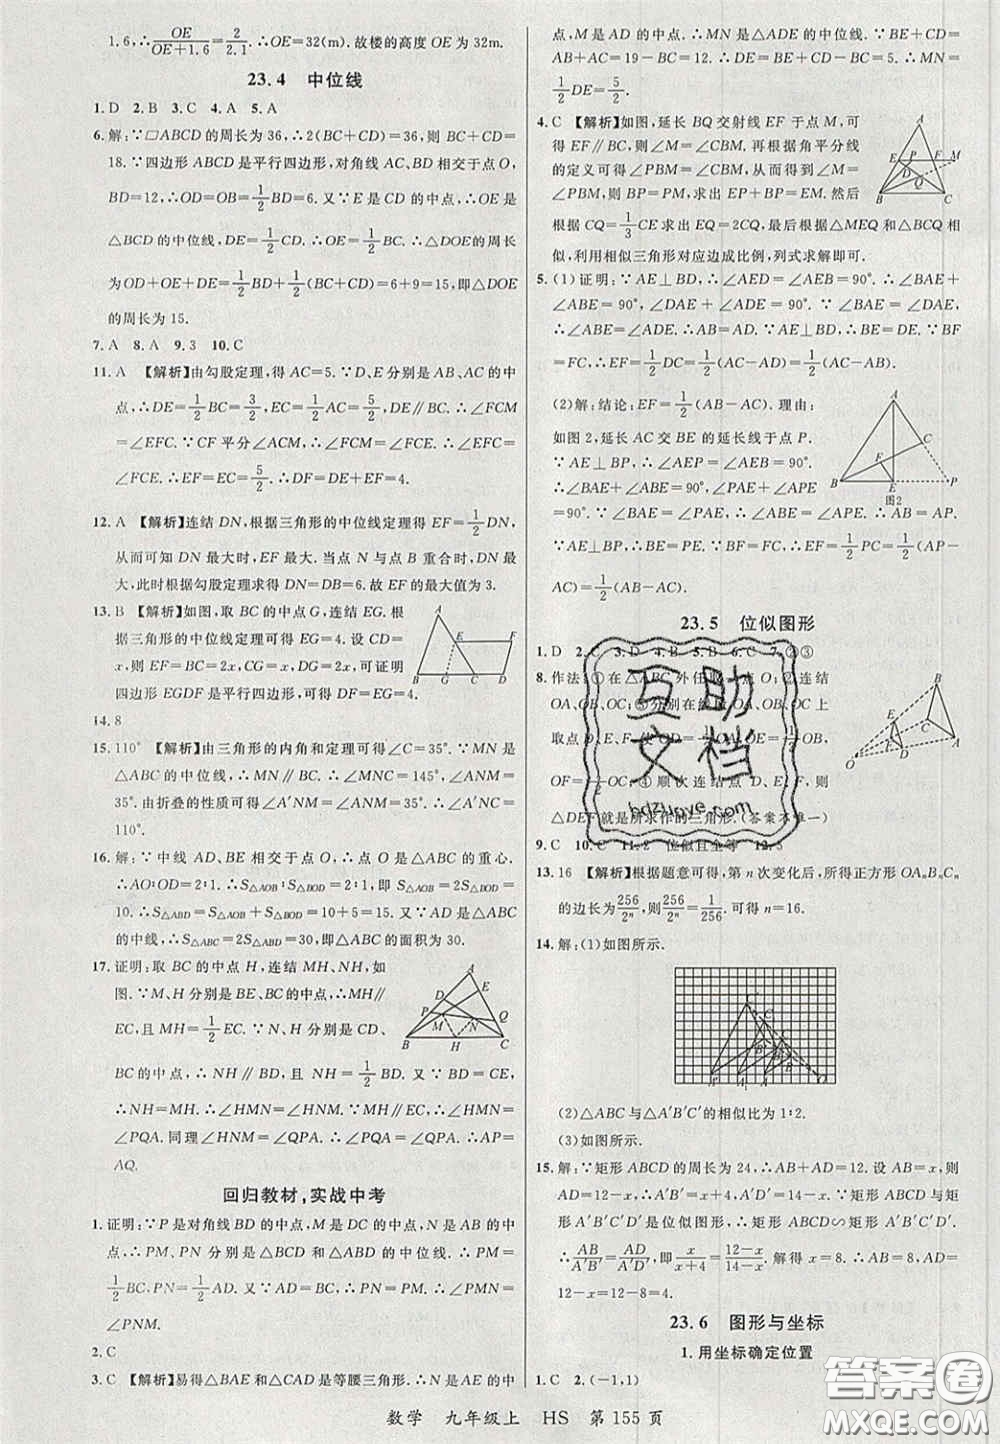 1.6,∴OE/(OE+1.6)=2/2.1.∴OE=32(m).故楼的高度OE为32m.
23.4 中位线
1.D 2.B 3.C 4.A 5.A
6.解:∵▱ABCD的周长为36,∴2(BC+CD)=36,则BC+CD=
18.∵四边形ABCD是平行四边形,对角线AC、BD相交于点O,
BD=12,∴OD=OB=1/2BD=6.又∵点E是CD的中点,∴OE是
△BCD的中位线,DE=1/2CD.∴OE=1/2BC.∴△DOE的周长
为OD+OE+DE=1/2BD+1/2(BC+CD)=6+9=15,即△DOE
的周长为15.
7.A 8.A 9.3 10.C
11.A 【解析】由勾股定理,得AC=5.∵D、E分别是AB、AC的中
点,∴DE=1/2BC=3/2,EC=1/2AC=5/2,DE∥BC.∴∠FCM
=∠EFC.∵CF平分∠ACM,∴∠FCM=∠FCE.∴∠EFC=
∠FCE.∴EF=EC=5/2.∴DF=DE+EF=4.
12.A 【解析】连结DN,根据三角形的中位线定理得EF=1/2DN,
从而可知DN最大时,EF最大.当点N与点B重合时,DN最
大,此时根据勾股定理求得DN=DB=6.故EF的最大值为3.
13.B 【解析】如图,取BC的中点G,连结EG.根
据三角形的中位线定理可得EG=4.设CD=
x,则EF=BC=2x,CG=x,DG=2x,可证明
四边形EGDF是平行四边形,可得DF=EG=4.
A
E
F
B
G
C
D
14.8
15.110° 【解析】由三角形的内角和定理可得∠C=35°.易得MN是
△ABC的中位线,∴MN∥BC.∴∠CNM=145°,∠ANM=
35°.由折叠的性质得∠A'NM=∠ANM=35°.∴∠A'NC=
110°.
16.解:∵中线AD、BE相交于点O,∴点O是△ABC的重心.
∴AO:OD=2:1.∴S△AOB:S△BOD=2:1,即S△AOB=2S△BOD=
10.∴S△ABD=S△AOB+S△BOD=10+5=15.又∵AD是△ABC
的中线,∴S△ABC=2S△ABD=30,即△ABC的面积为30.
17.证明:取BC的中点H,连结MH、NH,如
图.∵M、H分别是BE、BC的中点,∴MH∥
EC,且MH=1/2EC.∵N、H分别是CD、
BC的中点,∴NH∥BD,且NH=1/2BD.∵BD=CE,∴MH=
NH.∴∠HMN=∠HNM.∵MH∥EC,∴∠HMN=
∠PQA.同理∠HNM=∠QPA.∴∠APQ=∠PQA.∴AP=
AQ.
A
D
E
P
Q
M
N
B
H
C
回归教材,实战中考
1.证明:∵P是对角线BD的中点,M是DC的中点,N是AB的中
点,∴PM、PN分别是△BCD和△ABD的中位线.∴PM=
1/2BC,PN=1/2AD.又∵AD=BC,∴PM=PN.∴∠PMN=
∠PNM.
2.C
3.C 【解析】易得△BAE和△CAD是等腰三角形.∴N是AE的中
点,M是AD的中点.∴MN是△ADE的中位线.
+AC=AB+AC=19-BC=12.∴DE=5.∴MN=
1/2DE=5/2.
4.C 【解析】如图,延长BQ交射线EF于点M,可
得EF∥BC,则∠M=∠CBM.再根据角平分线
的定义可得∠PBM=∠CBM,从而得到∠M=
∠PBM,则BP=PM.求出EP+BP=EM.然后
根据CQ=1/3CE求出EQ=2CQ,由△MEQ和△BCQ相
似,利用相似三角形对应边成比例,列式求解即可.
A
E
P
F
M
D
Q
B
C
5.(1)证明:∵AE⊥BD,∴∠AED=∠AEB=90°.∴∠BAE+
∠ABE=90°,∠DAE+∠ADE=90°.∵∠BAE=∠DAE,
∴∠ABE=∠ADE.∴AB=AD.∵AE⊥BD,∴BE=DE.∵BF=
FC,∴EF=1/2DC=1/2(AC-AD)=1/2(AC-AB).
(2)解:结论:EF=1/2(AB-AC).理由:
如图2,延长AC交BE的延长线于点P.
∵AE⊥BP,∴∠AEP=∠AEB=90°.
∴∠BAE+∠ABE=90°,∠PAE+∠APE
=90°.∵∠BAE=∠PAE,∴∠ABE=∠APE.∴AB=AP.
∵AE⊥BP,∴BE=PE.∵BF=FC,∴EF=1/2PC=1/2(AP-
AC)=1/2(AB-AC).
A
C
F
B
E
P
图2
23.5 位似图形
1.D 2.C 3.D 4.B 5.B 6.C 7.②③
8.作法:①在△ABC外任取一点O;②连结
OA、OB、OC;③分别在线段OA、OB、OC上
取点D、E、F,使OD=
OF=1/2OC;④顺次连结点D、E、F,则
△DEF就是所求作的三角形.(答案不唯一)
B
E
C
F
D
A
O
9.C 10.C 11.2 位似且全等 12.5
13.16 【解析】根据题意可得,第n次变化后,所得正方形OAₙBₙCₙ
的边长为256/2ⁿ,则256/2ⁿ=1/256.可得n=16.
14.解:(1)如图所示.
(2)△ABC与△A'B'C'的相似比为1:2.
(3)如图所示.
15.解:∵矩形ABCD的周长为24,∴AB+AD=12.设AB=x,则
AD=12-x,A'B'=x+4,A'D'=14-x.∵矩形ABCD与矩形
A'B'C'D'是位似图形,∴矩形ABCD∽矩形A'B'C'D'.
∴AB/A'B'=AD/A'D',即x/(x+4)=(12-x)/(14-x).解得x=8.∴AB=8,AD=
12-x=12-8=4.
23.6 图形与坐标
1.用坐标确定位置
1.C 2.(-1,1)
数学 九年级上 HS 第155页
互助
文档
hdzuoye.com
答案圈
MXQE.COM